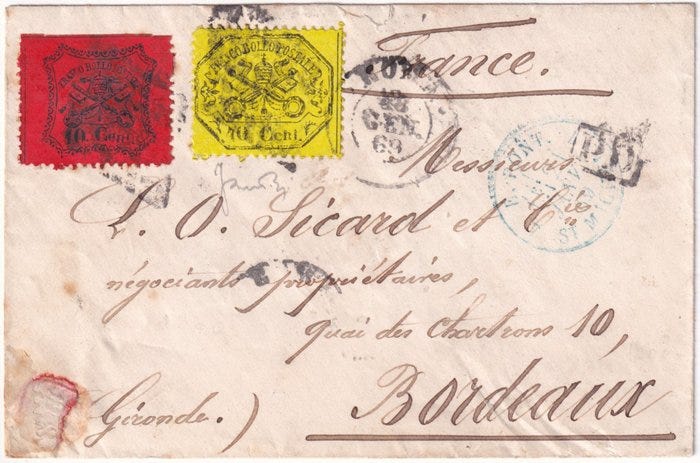 FRANCO BOLLO POSTALE
10 Cent.
FRANCO BOLLO POSTALE
40 Cent.
ROMA
GEN.
P.D.
France.
Messieurs
L. O. Sicard et Cie
négociants propriétaires,
quai des Chartrons 10,
Gironde.) Bordeaux